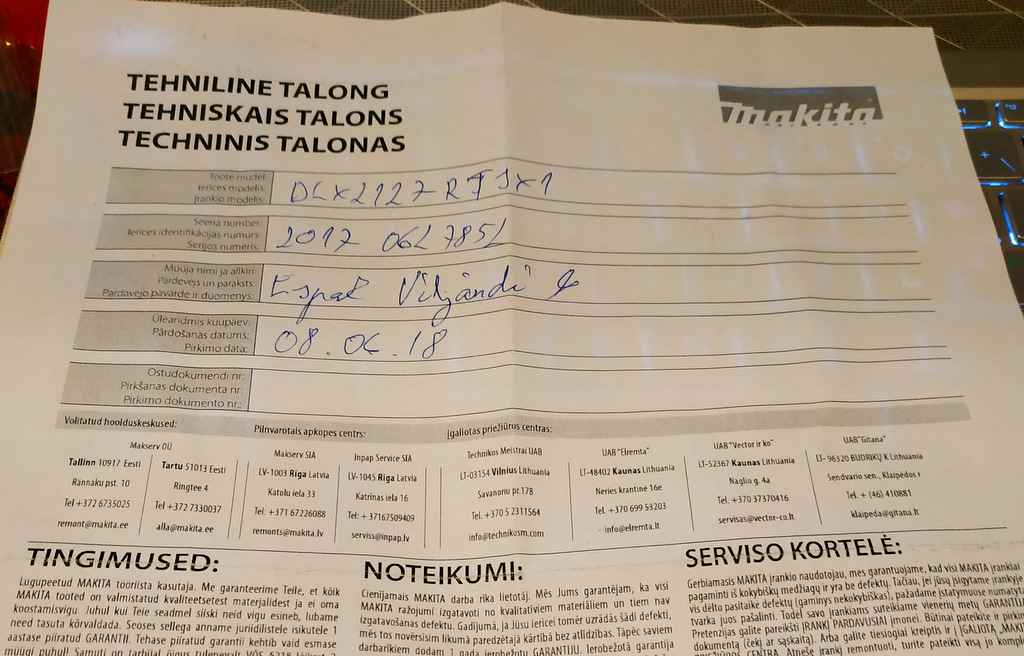 TEHNILINE TALONG
TEHNISKAIS TALONS
TECHNINIS TALONAS
makita
Toote mudel:
Ierīces modelis:
Įrankio modelis:
DLX2127
Seeria number:
Ierīces identifikācijas numurs:
Serijos numeris:
2017
Müüja nimi ja allkiri:
Pārdevējs un paraksts:
Pardavėjo pavardė ir duomenys:
Espak Viljandi
Üleandmis kuupäev:
Pārdošanas datums:
Pirkimo data:
08.06.18
Ostudokumendi nr:
Pirkšanas dokumenta nr:
Pirkimo dokumento nr.:
Volitatud hoolduskeskused:
Makserv OÜ
Tallinn 10917 Eesti
Rännaku pst. 10
Tel +372 6735025
remont@makita.ee
Tartu 51013 Eesti
Ringtee 4
Tel +372 7330037
alla@makita.ee
Pilnvarotais apkopes centrs:
Makserv SIA
LV-1003 Riga Latvia
Katolu iela 33
Tel: +371 67226088
remonts@makita.lv
Inpap Service SIA
LV-1045 Riga Latvia
Katrinas iela 16
Tel: + 37167509409
serviss@inpap.lv
Įgaliotas priežiūros centras:
Technikos Meistrai UAB
LT-03154 Vilnius Lithuania
Savanoriu pr.178
Tel. +370 5 2311564
info@technikosm.com
UAB "Elremta"
LT-48402 Kaunas Lithuania
Neries krantinė 16e
Tel. +370 699 53203
info@elremta.lt
UAB "Vector ir ko"
LT-52367 Kaunas Lithuania
Naglio g. 4a
Tel. +370 37370416
servisas@vector-co.lt
UAB"Gitana"
LT- 96320 BUDRIKŲ K Lithuania
Sendvario sen., Klaipėdos r
Tel. + (46) 410881
klaipeda@gitana.lt
TINGIMUSED:
Lugupeetud MAKITA tööriista kasutaja. Me garanteerime Teile, et kõik
MAKITA tooted on valmistatud kvaliteetsetest materjalidest ja ei oma
koostamisvigu. Juhul kui Teie seadmel siiski neid vigu esineb, lubame
need tasuta kõrvaldada. Seoses sellega anname juriidilistele isikutele 1
aastase piiratud GARANTII. Tehase piiratud garantii kehtib vaid esmase
NOTEIKUMI:
Cienījamais MAKITA darba rika lietotāj. Mēs Jums garantējam, ka visi
MAKITA ražojumi izgatavoti no kvalitatīviem materiāliem un tiem nav
izgatavošanas defektu. Gadījumā, ja Jūsu ierīcei tomēr uzrādās šādi defekti,
mēs tos novērsīsim likumā paredzētajā kārtībā bez atlīdzības. Tāpēc saviem
darbarīkiem dodam 1 gada ierobežotu GARANTIJU. Ierobežotā garantija
SERVISO KORTELĖ:
Gerbiamasis MAKITA įrankio naudotojau, mes garantuojame, kad visi MAKITA įrankiai
pagaminti iš kokybiškų medžiagų ir yra be defektų. Tačiau, jei jūsų įsigytame įrankyje
vis dėlto pasitaikė defektų (gaminys nekokybiškas), pažadame įstatymuose numatyta
tvarka juos pašalinti. Todėl savo įrankiams suteikiame vienerių metų